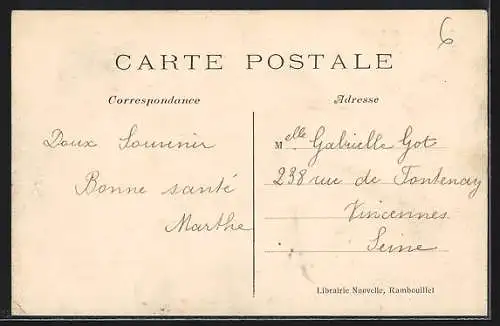 6
CARTE POSTALE
Correspondance
Adresse
Doux Souvenir
Bonne santé
Marthe
Melle Gabrielle Got
238 rue de Fontenay
Vincennes
Seine
Librairie Nouvelle, Rambouillet